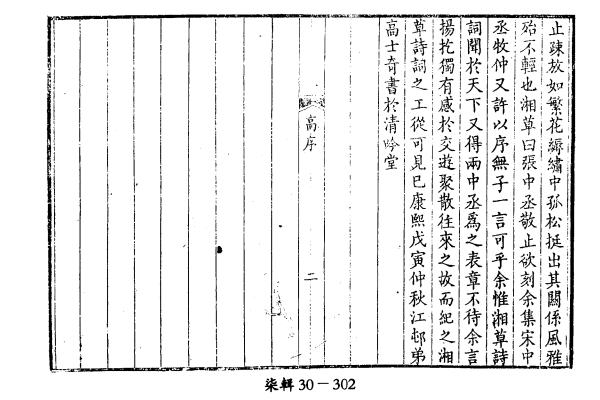 止疎放如繁花縟繡中孤松挺出其關係風雅
殆不輕也湘草曰張中丞敬止欲刻余集宋中
丞牧仲又許以序無子一言可乎余惟湘草詩
詞聞於天下又得兩中丞為之表章不待余言
揚扢獨有感於交遊聚散往來之故而紀之湘
草詩詞之工從可見已康熙戊寅仲秋江邨弟
高士奇書於清吟堂
高序
二
柒輯 30－302